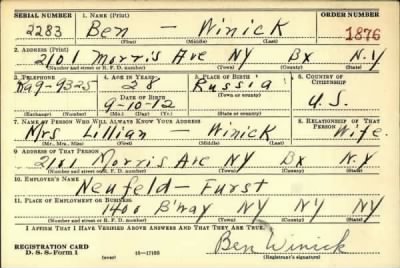 SERIAL NUMBER 1. NAME (Print) ORDER NUMBER
2283 Ben — Winick 1876
(First) (Middle) (Last)
2. ADDRESS (Print)
2101 Morris Ave NY Bx N.Y
(Number and street or R. F. D. number) (Town) (County) (State)
3. TELEPHONE 4. AGE IN YEARS 5. PLACE OF BIRTH 6. COUNTRY OF CITIZENSHIP
28 Russia U.S.
DATE OF BIRTH
9-10-12
(Exchange) (Number) (Mo.) (Day) (Yr.) (Town or county) (State or country)
7. NAME OF PERSON WHO WILL ALWAYS KNOW YOUR ADDRESS 8. RELATIONSHIP OF THAT PERSON
Mrs Lillian — Winick Wife.
(Mr., Mrs., Miss) (First) (Middle) (Last)
9. ADDRESS OF THAT PERSON
2101 Morris Ave NY Bx N.Y
(Number and street or R. F. D. number) (Town) (County) (State)
10. EMPLOYER'S NAME
Neufeld — Furst
11. PLACE OF EMPLOYMENT OR BUSINESS
1400 B'way NY NY NY
(Number and street or R. F. D. number) (Town) (County) (State)
I AFFIRM THAT I HAVE VERIFIED ABOVE ANSWERS AND THAT THEY ARE TRUE.
Ben Winick
REGISTRATION CARD
D. S. S. Form 1 (over) 16—17105 (Registrant's signature)